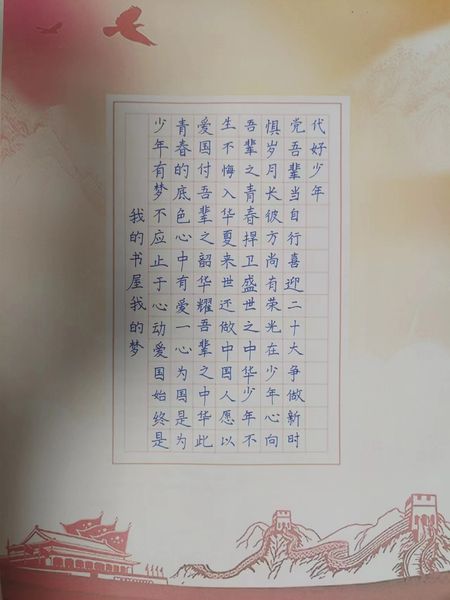 我的书屋我的梦
少年有梦不应止于心动爱国始终是
青春的底色心中有爱一心为国是为
爱国付吾辈之韶华耀吾辈之中华此
生不悔入华夏来世还做中国人愿以
吾辈之青春捍卫盛世之中华少年不
惧岁月长彼方尚有荣光在少年心向
党吾辈当自行喜迎二十大争做新时
代好少年